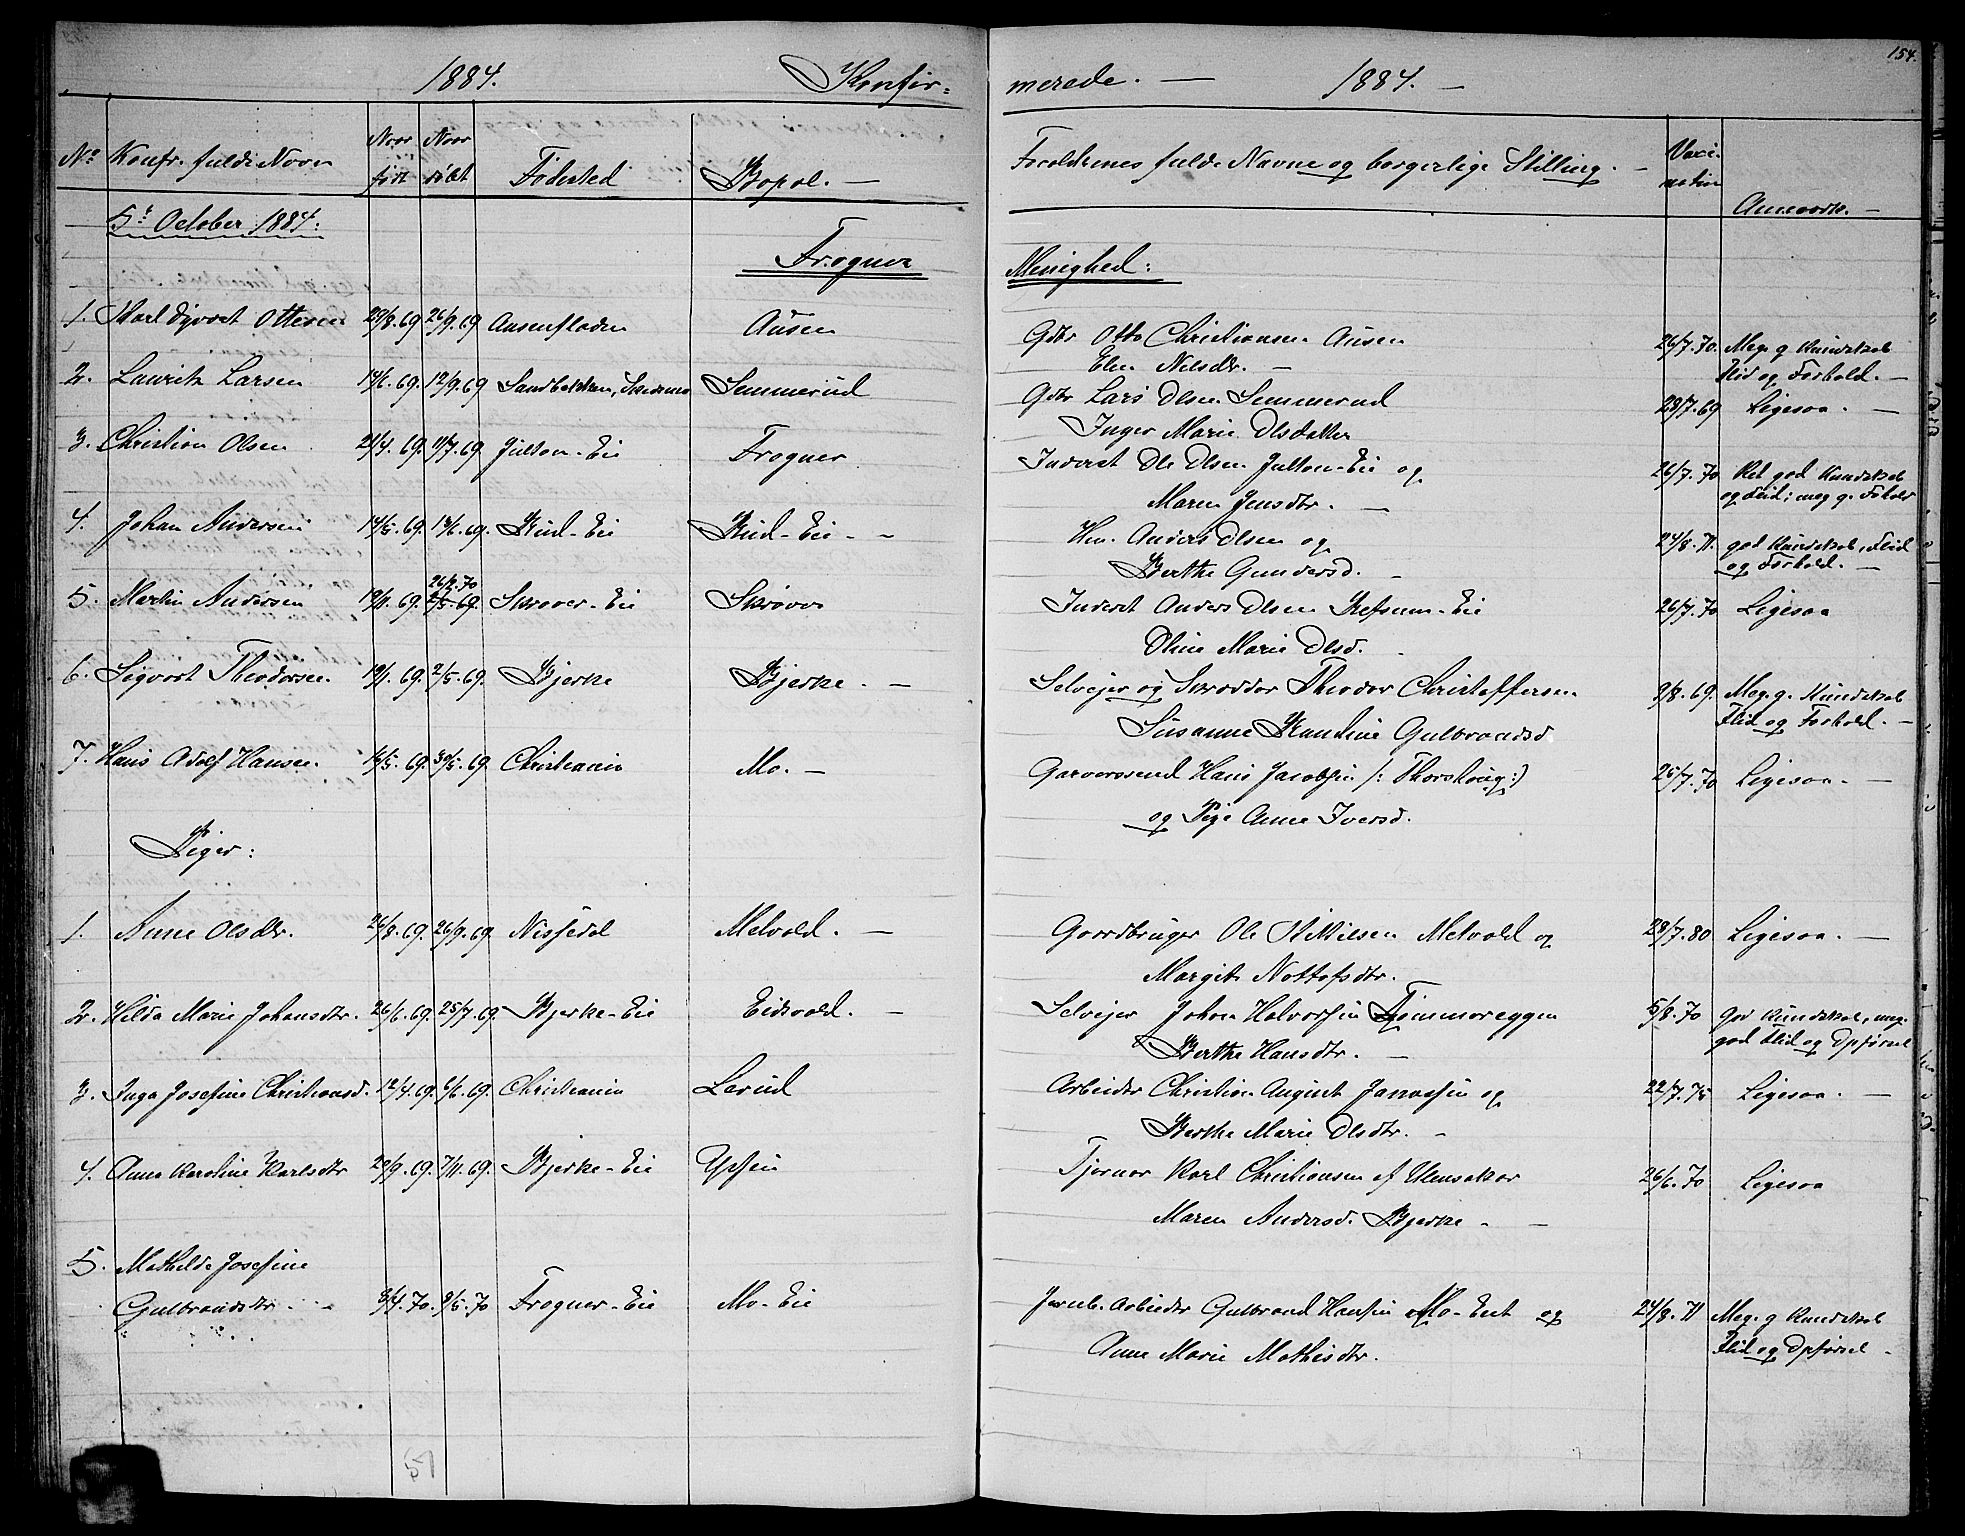 154.
1884. Konfir-
merede. — 1884. —
No Konfr. fulde Navn Naar født Naar døbt Fødested Bopæl. —
Forældrenes fulde Navne og borgerlige Stilling. — Vaxi-nation Anmærk. —
5te October 1884:
Frogner
Menighed:
1. Karl Ottesen 29/8.69 26/9.69 Ausen
Gdbr Otto Christiansen Ausen 26/7.70. Meg. g Kundskab
Elen Nilsdtr. — Flid og Forhold. —
2. Laurits Larsen 12/9.69 Sandbakken, Semmerud
Gdbr Lars Olsen Semmerud 28/7.69 Ligesaa. —
Inger Marie Olsdatter
3. Christian Olsen 21/4.69. 11/7.69. Jultom-Eie Frogner
Inderst Ole Olsen Jultom-Eie og 26/7.70 Ret god Kundskab
Maren Jensdtr. — og Flid; meg g. Forhold
4. Johan Andersen 14/5.69. 13/6.69. Rud-Eie Rud-Eie - -
Hm. Anders Olsen og 24/8.71. god Kundskab, Flid
Berthe Gundersd. - og Forhold. —
26/2.70
5. Martin Andersen 19/11.69. 2/5.69. Skrøver-Eie Skrøver
Inderst Anders Olsen Refsum-Eie 26/7.70 Ligesaa
Oline Marie Olsd. -
6. Sigvart Theodorsen. 19/1.69. 2/5.69. Bjerke Bjerke. —
Selvejer og Skrædder Theodor Christoffersen 3/8.69. Meg. g. Kundskab
Susanne Gulbrandsd Flid og Forhold. —
7. Hans Adolf Hansen. 16/5.69. 30/5.69. Christiania Mo. —
Garversvend Hans Jacobsen /: Thorshaug:/ 25/7.70 Ligesaa. —
og Pige Anne Iversd.
Piger:
1. Anne Olsdtr. 26/8.69. 26/9.69. Nissedal Melvold. —
Gaardbruger Ole Melvold og 28/7.80 Ligesaa. —
Margit Nottofsdtr. —
2. Hilda Marie Johansdtr. 26/6.69. 25/7.69. Bjerke-Eie Eidsvold. —
Selvejer Johan Halvorsen Tømmereggen 5/8.70 God Kundskab, meg.
Berthe Hansdtr. — god Flid og Opførsel
3. Inga Josefine Christiansd. 12/4.69. 6/6.69. Christiania Lerud
Arbeider Christian August og 22/7.75 Ligesaa. —
Berthe Marie Olsdtr. -
4. Anna Karoline Karlsdtr 29/9.69. 7/11.69. Bjerke-Eie
Tjener Karl Christiansen af Ullensaker 26/6.70 Ligesaa
Maren Andersd. Bjerke - —
5. Mathilde Josefine
Gulbrandsdtr. 3/4.70. 9/5.70 Frogner-Eie Mo-Eie
Jernb. Arbeider Gulbrand Hansen Mo-Eiet og 24/8.71 Meg. g Kundskab
Anne Marie Mathisdtr. Flid og Opførsel -
51